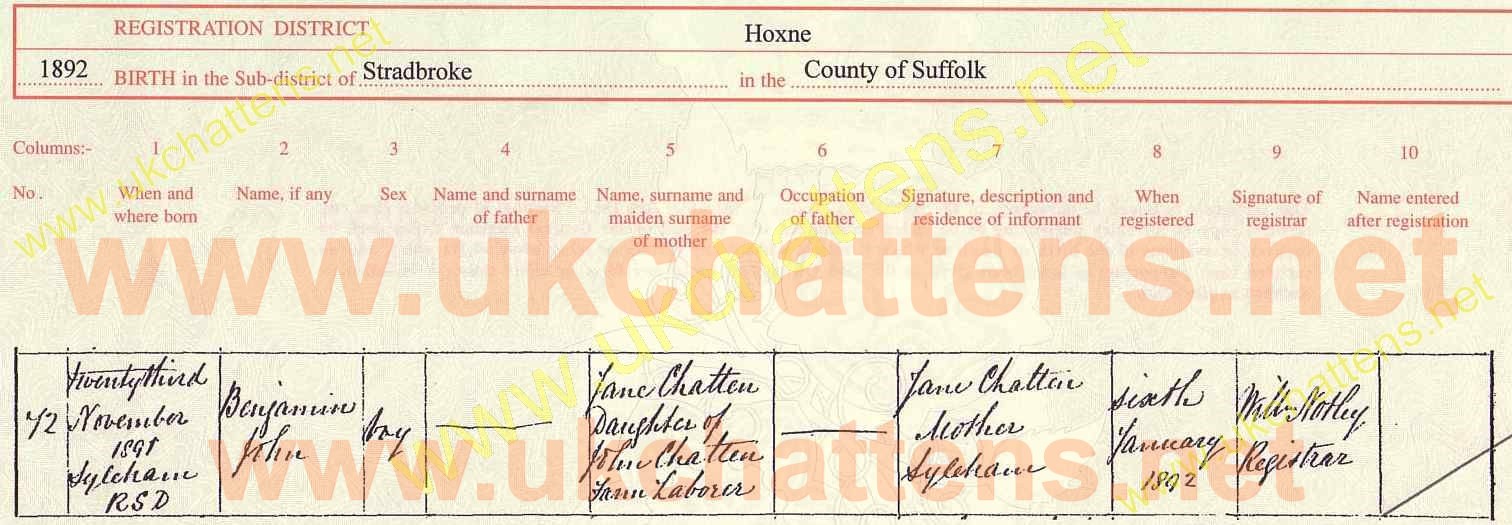 REGISTRATION DISTRICT Hoxne
1892 BIRTH in the Sub-district of Stradbroke in the County of Suffolk
Columns:- 1 2 3 4 5 6 7 8 9 10
No. When and where born Name, if any Sex Name and surname of father Name, surname and maiden surname of mother Occupation of father Signature, description and residence of informant When registered Signature of registrar Name entered after registration
www.ukchattens.net
72
Twenty third
November
1891
Syleham
RSD
Benjamin
John
boy
Jane Chatten
Daughter of
John Chatten
Farm Laborer
Jane Chatten
Mother
Syleham
Sixth
January
1892
Will Notley
Registrar
www.ukchattens.net
www.ukchattens.net
www.ukchattens.net
www.ukchattens.net